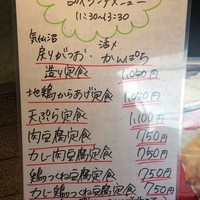 ランチメニュー
11:30~13:30
気仙沼 活〆
戻りがつお・かんぱち
造り定食 1,050円
地鶏からあげ定食 1,050円
天ぷら定食 1,100円
肉豆腐定食 750円
カレー肉豆腐定食 750円
鶏つくね豆腐定食 750円
カレー鶏つくね豆腐定食 750円